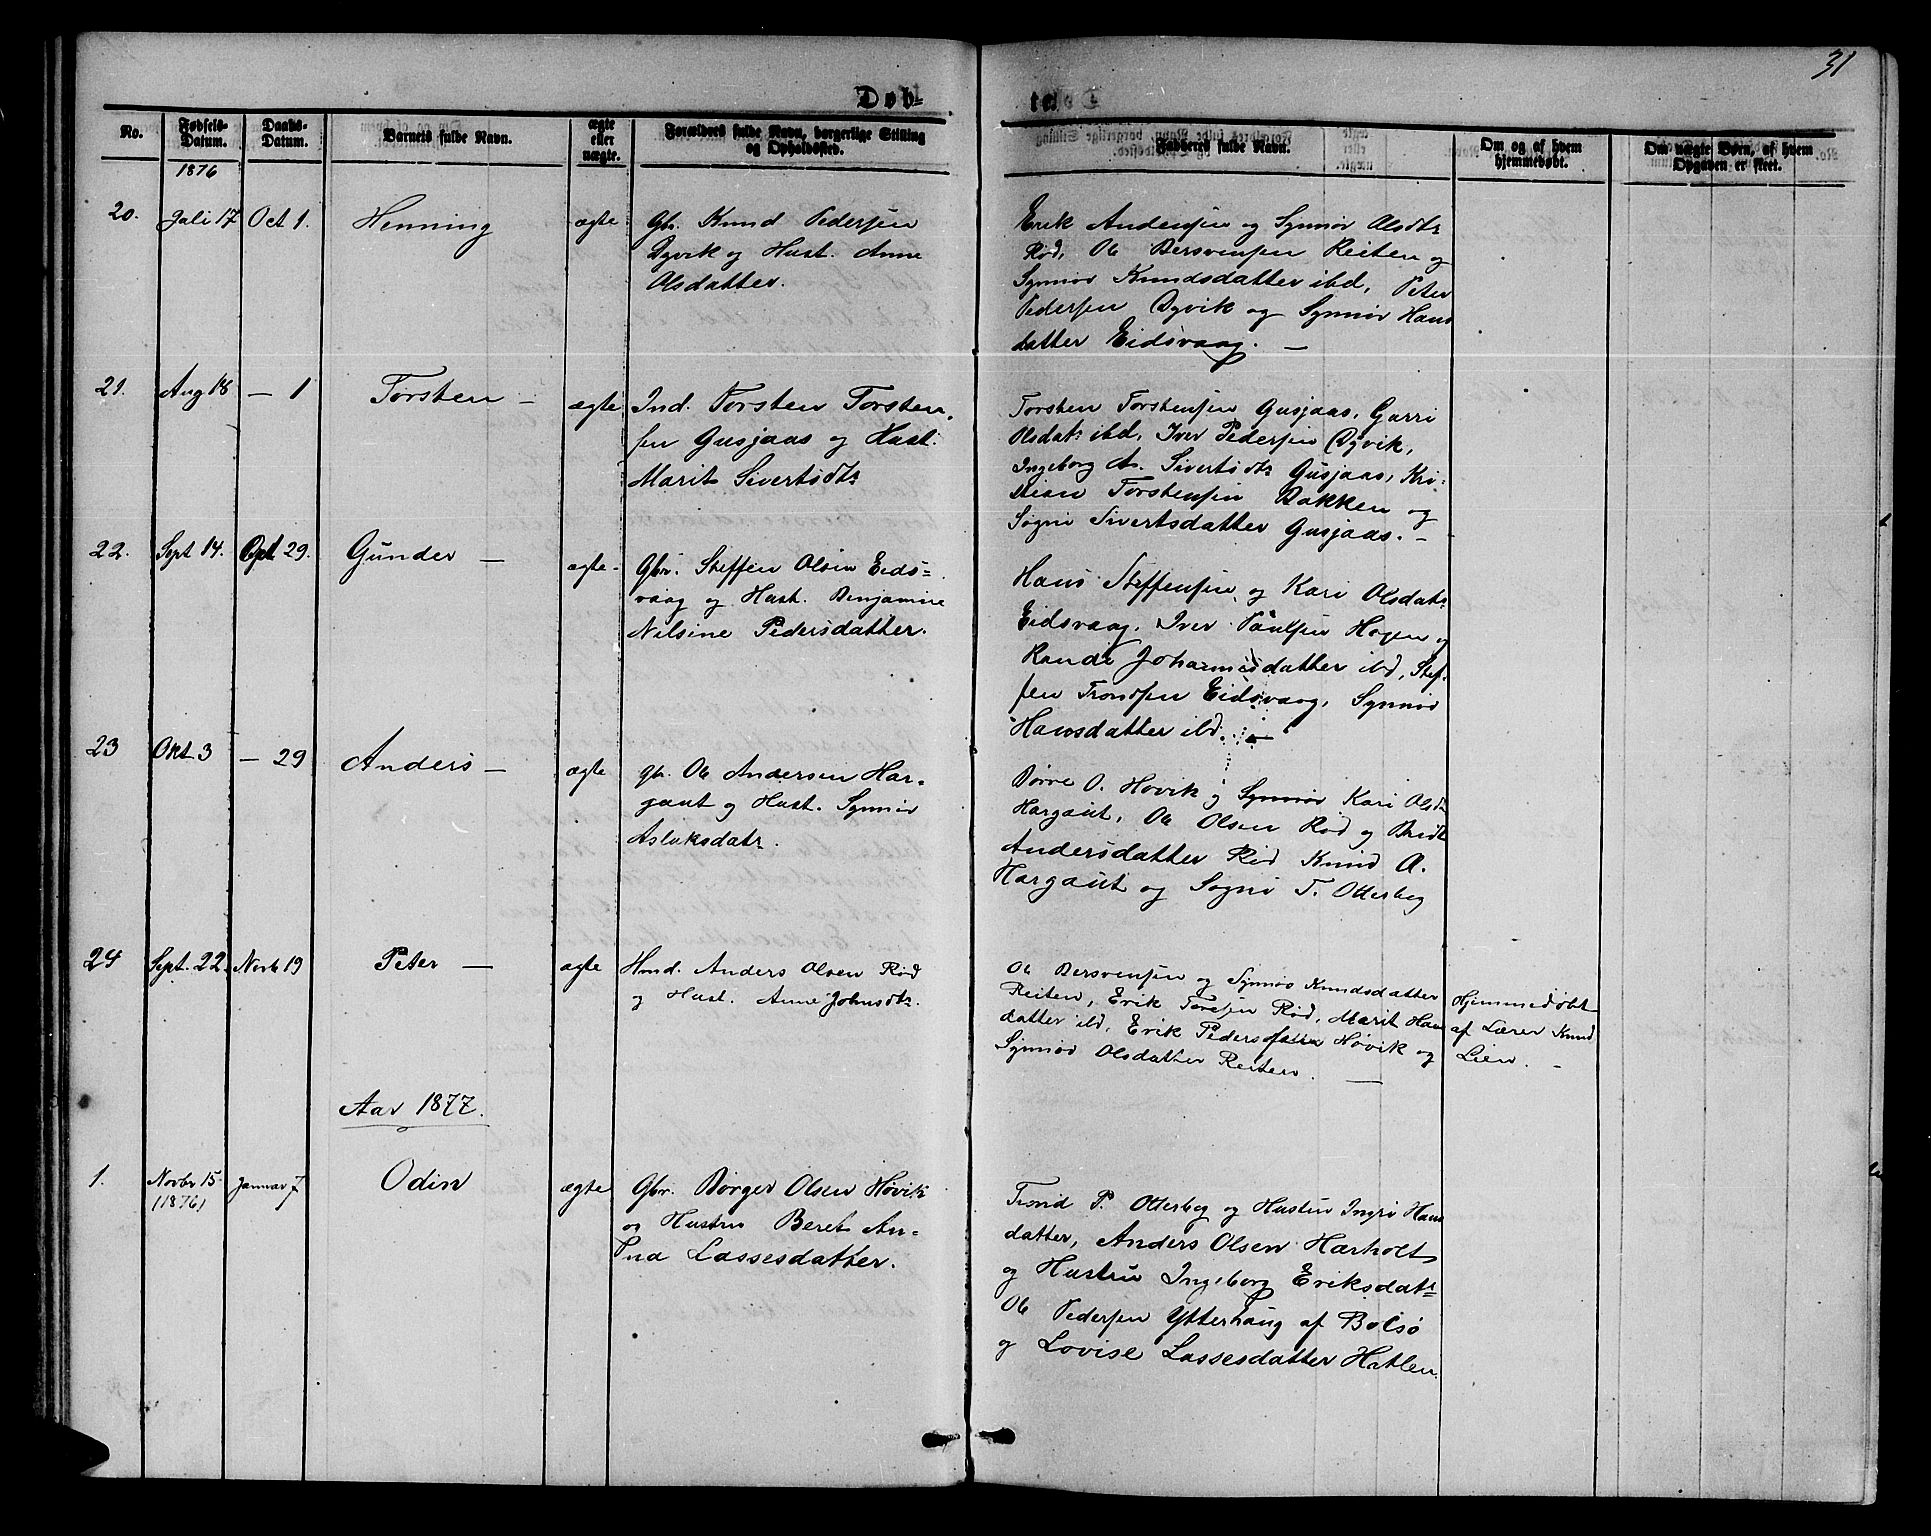 31
Døb-
No.
Fødsels-
Datum.
Daabs-
Datum.
Barnets fulde Navn.
ægte
eller
uægte.
Forældres fulde Navn, borgerlige Stilling
og Opholdssted.
Fadderes fulde Navn.
Om og af hvem
hjemmedøbt.
Om uægte Børn, af hvem
Opgaven er skeet.
1876
20.
Juli 17
Oct 1.
Henning
ægte
Gbr. Knud Pedersen
Dyvik og Hust. Anne
Olsdatter.
Erik Andersen og Synnøv Olsdtr
Rød, Ole Bersvensen Reiten og
Synnøv Knudsdatter ibd, Peter
Pedersen Dyvik og Synnøv Hans
datter Eidsvaag. —
21.
Aug 18
— 1
Torsten —
ægte
Ind. Torsten Torsten-
sen Gusjaas og Hust.
Marit Sivertsdtr
Torsten Torstensen Gusjaas, Gurri
Olsdatr ibd, Iver Pedersen Dyvik,
Ingeborg A. Sivertsdtr Gusjaas, Kri-
stian Torstensen Bakken og
Søgni Sivertsdatter Gusjaas. —
22.
Sept 14.
Oct 29.
Gunder —
ægte-
Gbr. Steffen Olsen Eids-
vaag og Hust. Benjamine
Nilsine Pedersdatter.
Hans Steffensen og Kari Olsdatr
Eidsvaag, Iver Paulsen Hagen og
Randi Johannesdatter ibd, Stef-
fen Trondsen Eidsvaag, Synnøv
Hansdatter ibd. —
23
Okt 3
— 29
Anders —
ægte
gbr. Ole Andersen Har-
gaut og Hust. Synnøv
Aslaksdatr.
Børre O. Høvik og Synnøv Kari Olsdtr
Hargaut, Ole Olsen Rød og Berit
Andersdatter Rød Knud A.
Hargaut og Søgni T. Otterbeg
24
Sept. 22.
Novb 19
Peter —
ægte
Hmd. Anders Olsen Rød
og Hust. Anne Johnsdtr.
Ole Bersvensen og Synnøv Knudsdatter
Reiten, Erik Toresen Rød, Marit Hans
datter ibd, Erik Pedersen Høvik og
Synnøv Olsdatter Reiten. —
Hjemmedøbt
af Lærer Knud
Lien. —
Aar 1877.
1.
Novbr 15
(1876)
Januar 7
Odin
ægte
Gbr. Børger Olsen Høvik
og Hustru Beret An-
na Lassesdatter.
Trond P. Otterbeg og Hustru Ingri Hans
datter, Anders Olsen Hærholt
og Hustru Ingeborg Eriksdatr
Ole Pedersen Ytterhaug af Bolsø
og Lovise Lassesdatter Hatlen.